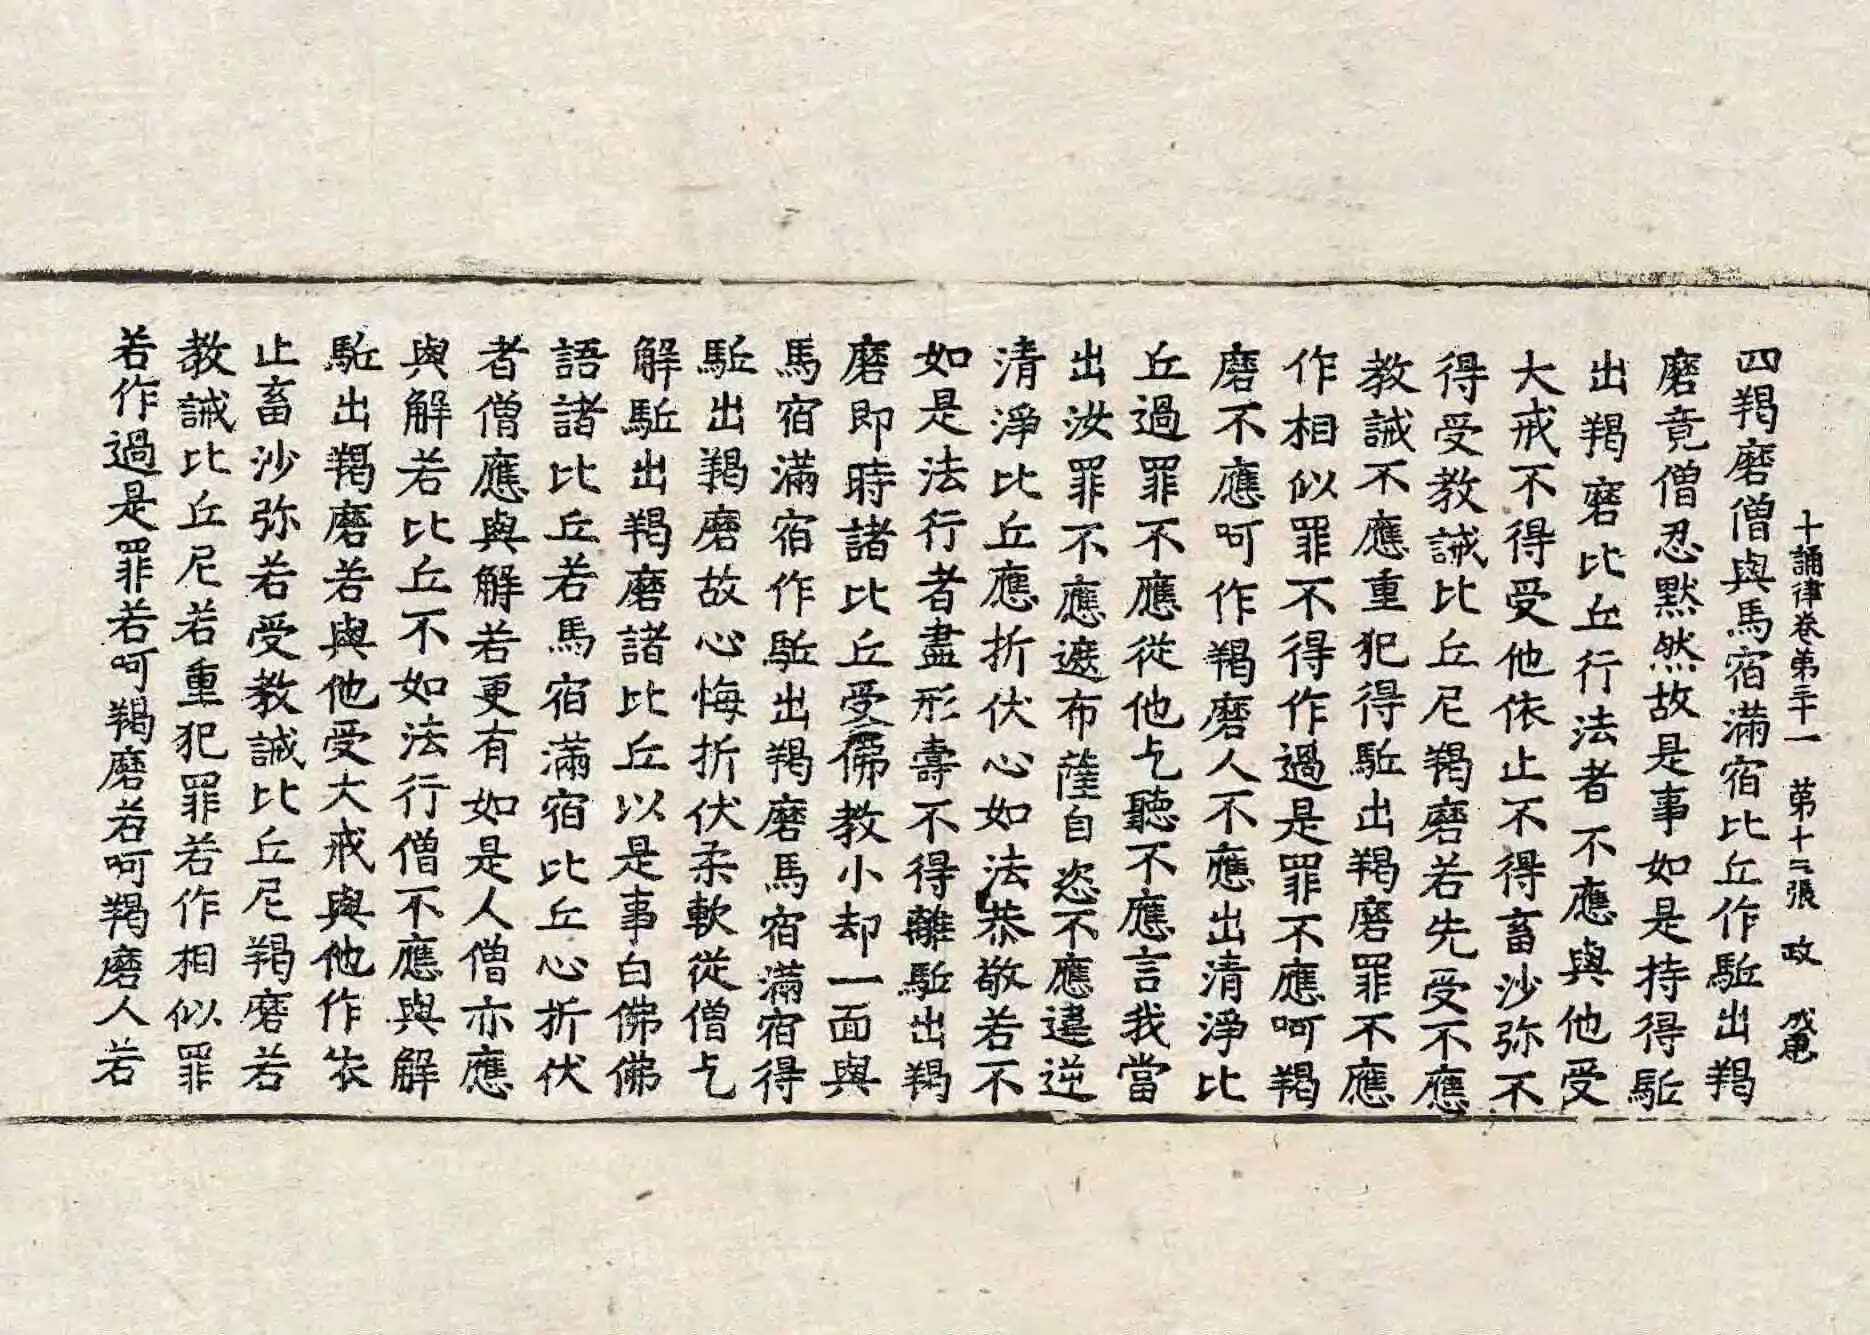 十誦律卷第三十一　第十二張　政
四羯磨僧與馬宿滿宿比丘作駈出羯
磨竟僧忍默然故是事如是持得駈
出羯磨比丘行法者不應與他受
大戒不得受他依止不得畜沙弥不
得受教誡比丘尼羯磨若先受不應
教誡不應重犯得駈出羯磨罪不應
作相似罪不得作過是罪不應呵羯
磨不應呵作羯磨人不應出清淨比
丘過罪不應從他乞聽不應言我當
出汝罪不應遮布薩自恣不應違逆
清淨比丘應折伏心如法恭敬若不
如是法行者盡形壽不得離駈出羯
磨即時諸比丘受佛教小却一面與
馬宿滿宿作駈出羯磨馬宿滿宿得
駈出羯磨故心悔折伏柔軟從僧乞
解駈出羯磨諸比丘以是事白佛佛
語諸比丘若馬宿滿宿比丘心折伏
者僧應與解若更有如是人僧亦應
與解若比丘不如法行僧不應與解
駈出羯磨若與他受大戒與他作依
止畜沙弥若受教誡比丘尼羯磨若
教誡比丘尼若重犯罪若作相似罪
若作過是罪若呵羯磨若呵羯磨人若